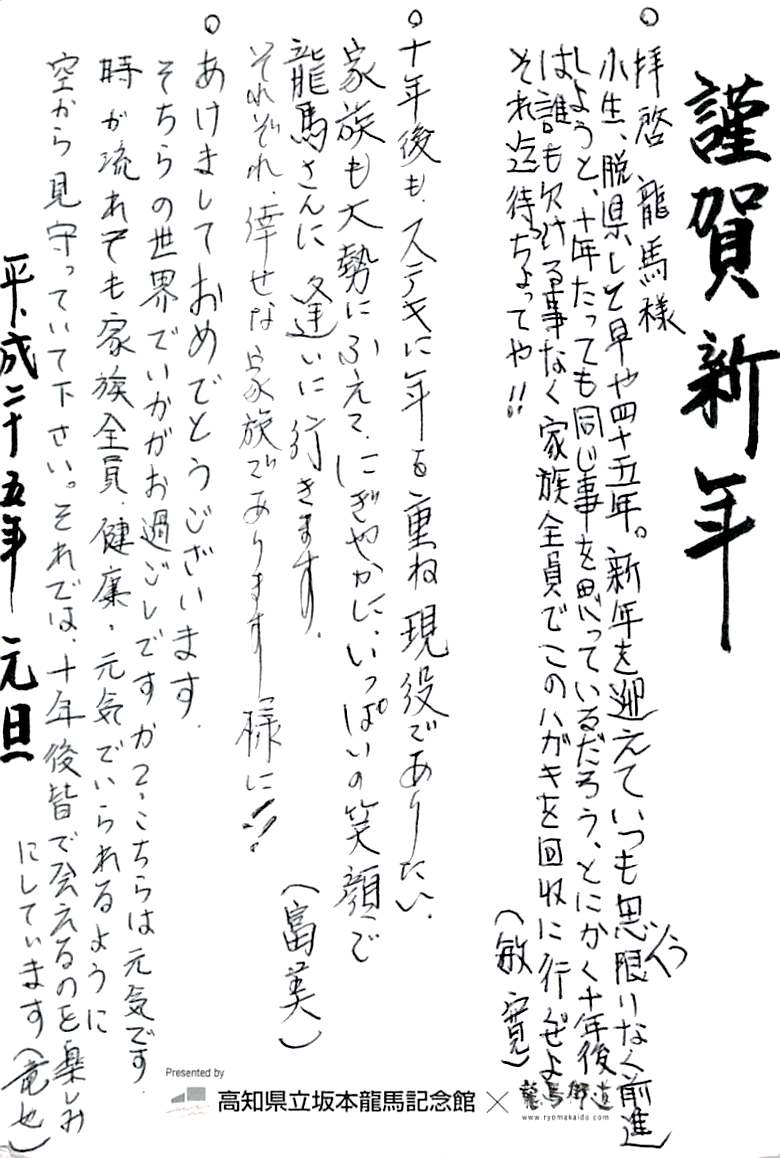 謹賀新年
○拝啓 龍馬様
小生、脱県して早や四十五年。新年を迎えていつも思う限りなく前進
しようと、十年たっても同じ事を思っているだろう、とにかく十年後
は誰も欠ける事なく家族全員でこのハガキを回収に行くぜよ
それ迄待っちょってや!!
(敏寛)
○十年後も、ステキに年を重ね現役でありたい、
家族も大勢にふえて、にぎやかに、いっぱいの笑顔で
龍馬さんに逢いに行きます。
それぞれ、倖せな家族であります様に!!
(富美)
○あけましておめでとうございます。
そちらの世界でいかがお過ごしですか?こちらは元気です。
時が流れても家族全員、健康・元気でいられるように
空から見守っていて下さい。それでは、十年後皆で会えるのを楽しみ
にしています(竜也)
平成二十五年 元旦
Presented by
高知県立坂本龍馬記念館×龍馬街道
www.ryomakaido.com